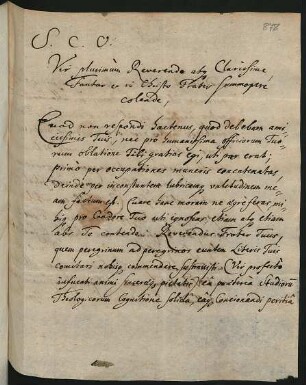 S. C. O.
Vir plurimùm Reverende atq Clarissime
Fautor et in Christo Frater summoperè
colende,
Quod non respondi hactenus, quod debebam ami-
cissimis Tuis, nec pro humanissima officiorum Tuo-
rum oblatione Tibi gratias egi, uti par erat;
primo per occupationes muneris
deinde per inconstantem lubricamq valetudinem me-
am factum est. Quare hanc moram ne ægrè feras mi-
hi, pro Candore Tuo uti ignoscas etiam atq etiam
abs Te contendo. Reverendus Frater Tuus
quem peregrinum ad peregrinos euntem Literis Tuis
nobis commendare Vir profecto
est animi pietatis, ea præterea Studiorum
Theologicorum Cognitione solida, eaq Concionandi peritia